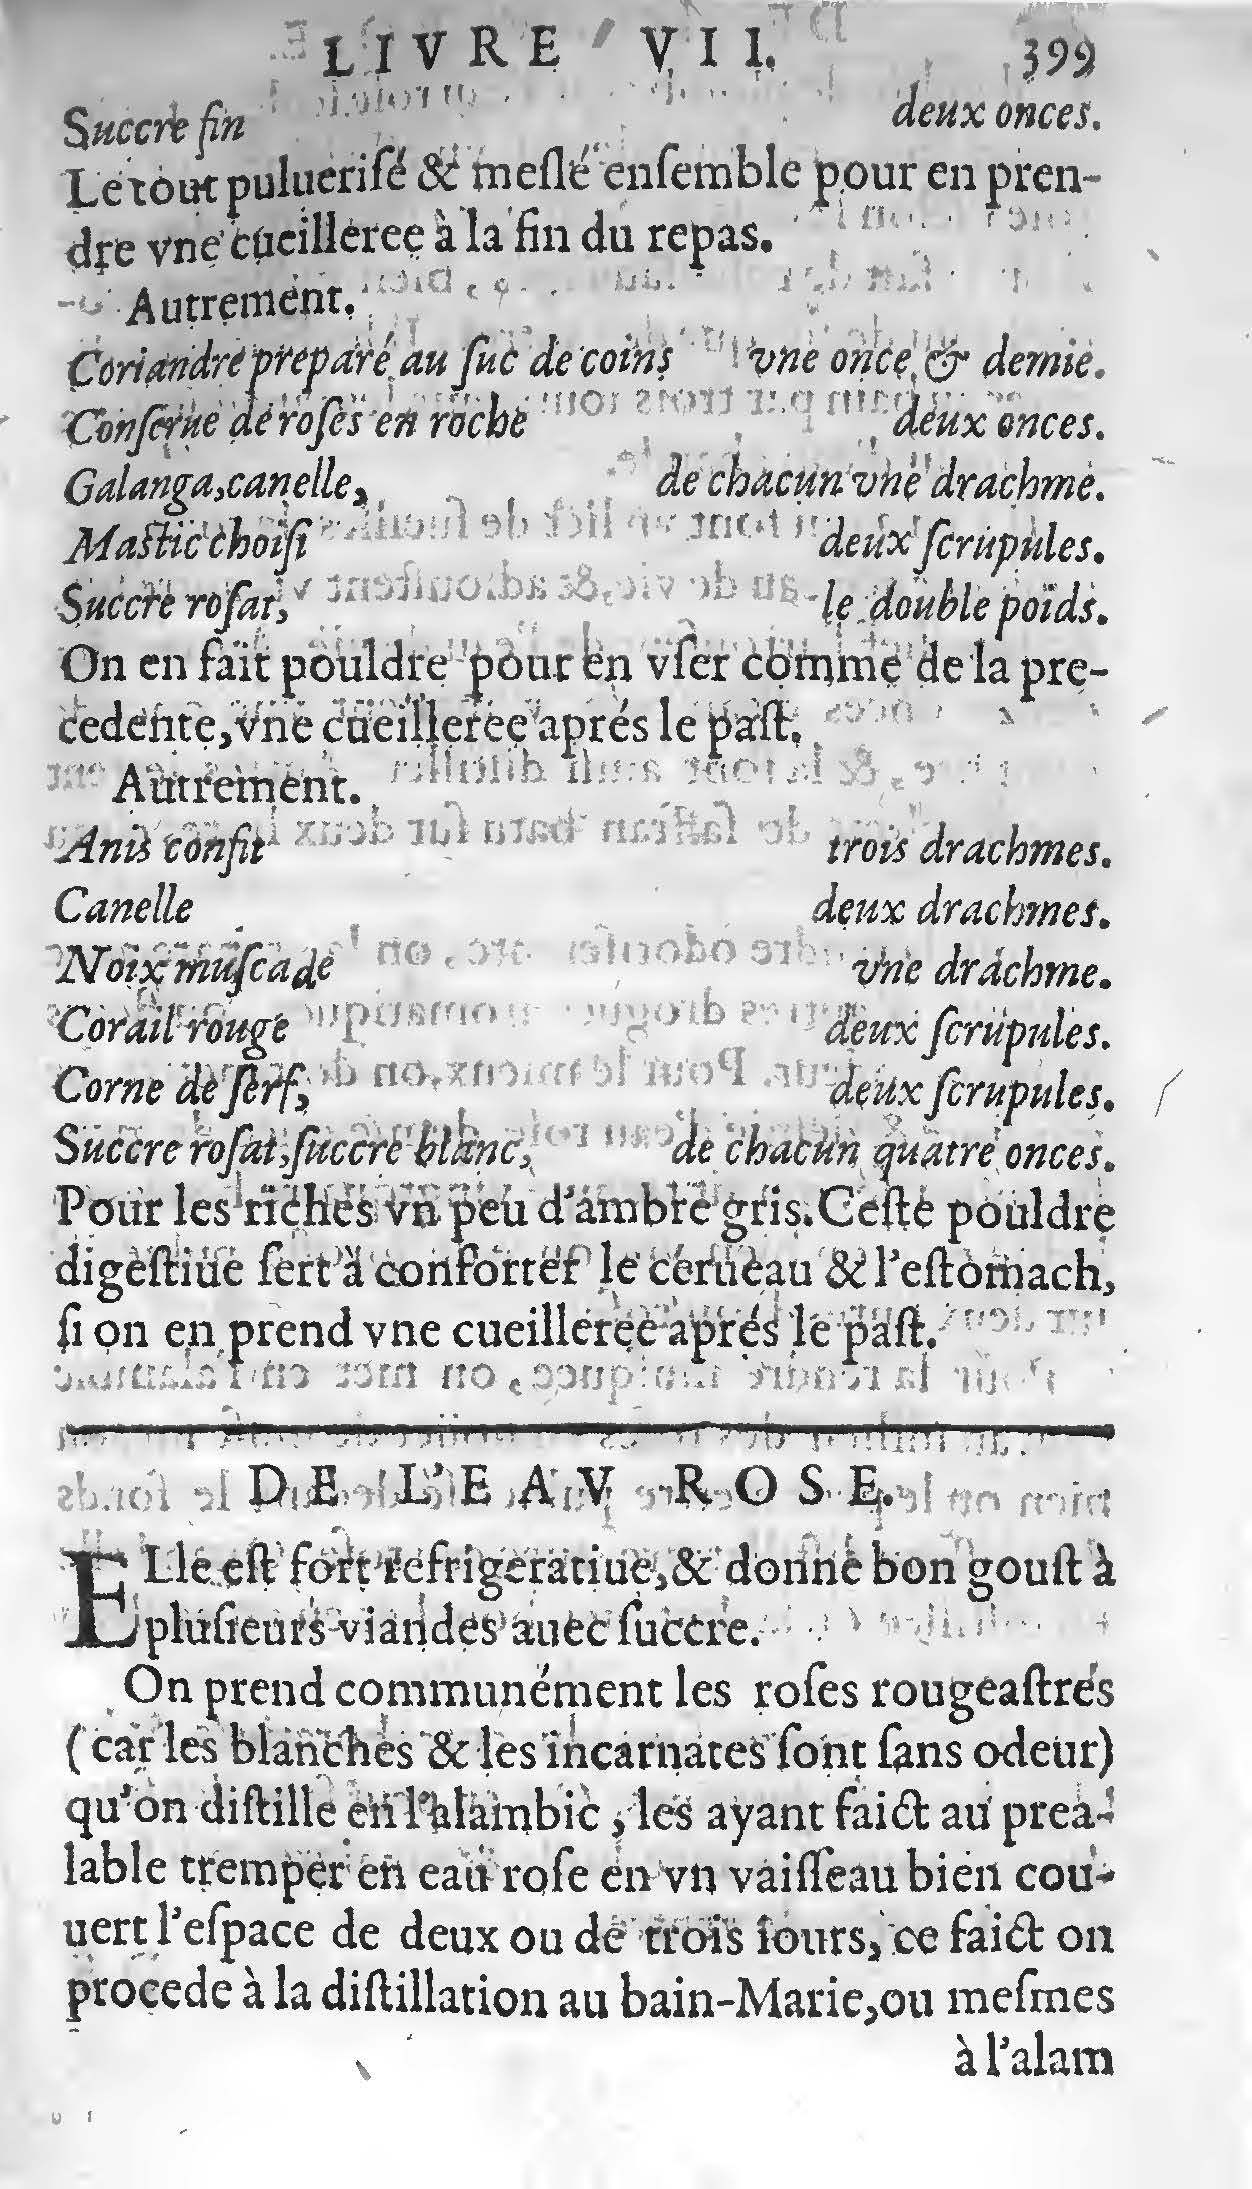 LIVRE VII. 399
Succre fin deux onces.
Le tout puluerisé & meslé ensemble pour en pren-
dre vne cueilleree à la fin du repas.
Autrement.
Coriandre preparé au suc de coins vne once & demie.
Conserue de roses en roche deux onces.
Galanga, canelle, de chacun vne drachme.
Mastic choisi deux scrupules.
Succre rosat, le double poids.
On en fait pouldre pour en vser comme de la pre-
cedente, vne cueilleree aprés le past.
Autrement.
Anis confit trois drachmes.
Canelle deux drachmes.
Noix muscade vne drachme.
Corail rouge deux scrupules.
Corne de serf, deux scrupules.
Succre rosat, succre blanc, de chacun quatre onces.
Pour les riches vn peu d'ambre gris. Ceste pouldre
digestiue sert à conforter le cerueau & l'estomach,
si on en prend vne cueilleree aprés le past.
DE L'EAV ROSE.
ELle est fort refrigeratiue, & donne bon goust à
plusieurs viandes auec succre.
On prend communément les roses rougeastres
(car les blanches & les incarnates sont sans odeur)
qu'on distille en l'alambic, les ayant faict au prea-
lable tremper en eau rose en vn vaisseau bien cou-
uert l'espace de deux ou de trois iours, ce faict on
procede à la distillation au bain-Marie, ou mesmes
à l'alam